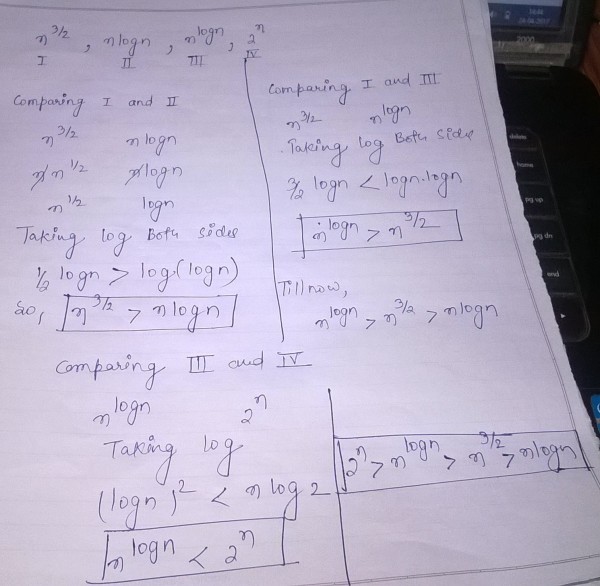 n^{3/2} , n logn , n^{logn} , 2^n
I II III IV
Comparing I and II
n^{3/2} n logn
n n^{1/2} n logn
n^{1/2} logn
Taking log Both sides
1/2 logn > log(logn)
so, n^{3/2} > n logn
Comparing I and III
n^{3/2} n^{logn}
Taking log Both sides
3/2 logn < logn.logn
n^{logn} > n^{3/2}
Till now,
n^{logn} > n^{3/2} > n logn
Comparing III and IV
n^{logn} 2^n
Taking log
(logn)^2 < n log 2
n^{logn} < 2^n
2^n > n^{logn} > n^{3/2} > n logn
delete
home
pg up
pg dn
end
2000